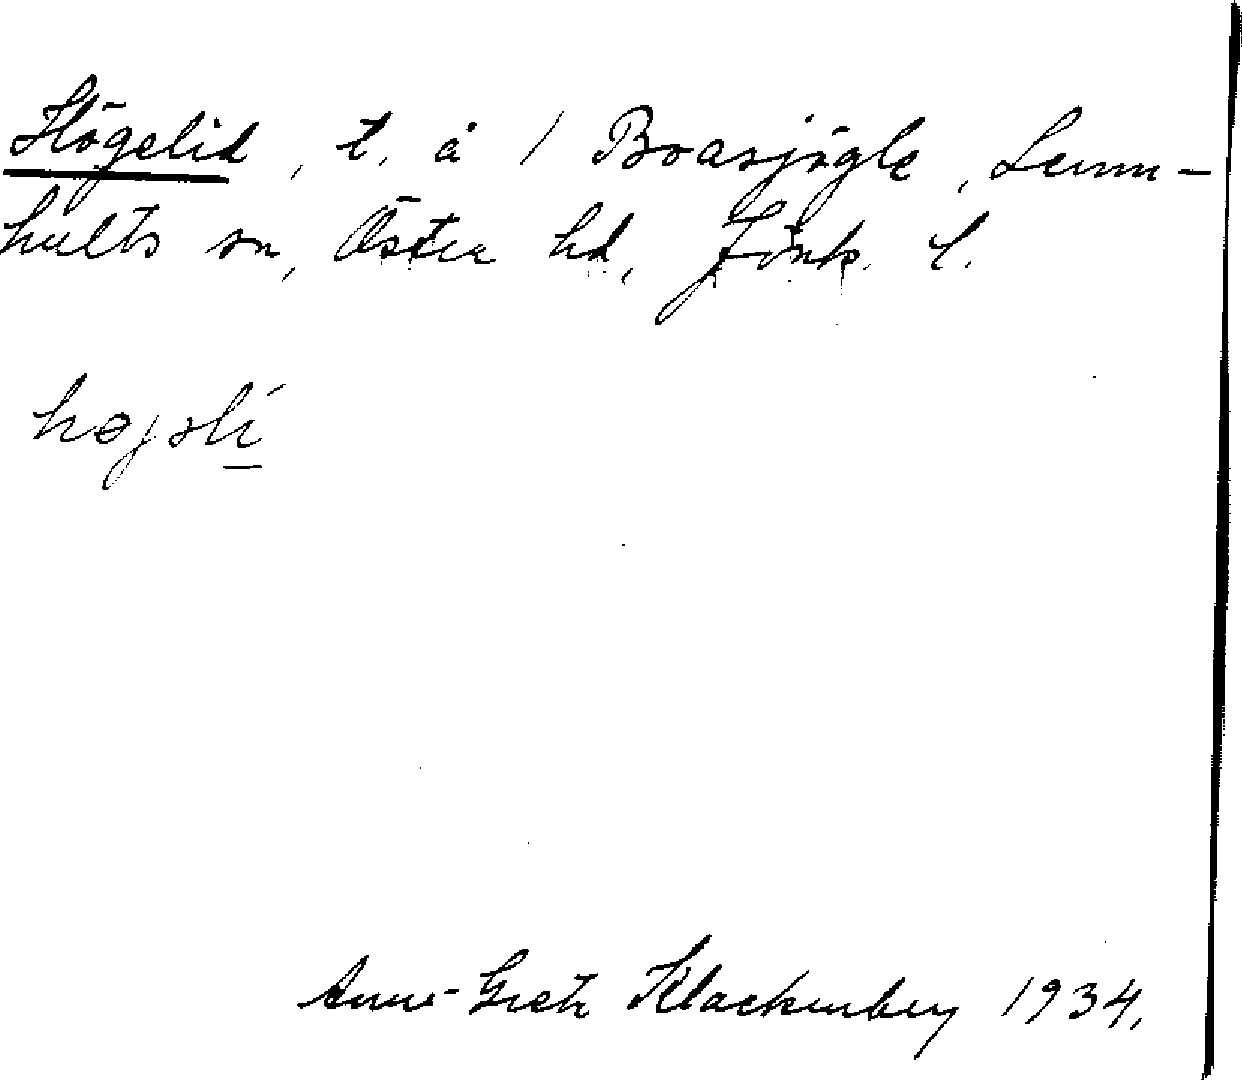 Högelid, t. å 1 Boasjögle, Lemn-
hults sn, Östra hd, Jönk. l.
Anna-Greta Klackenberg 1934.